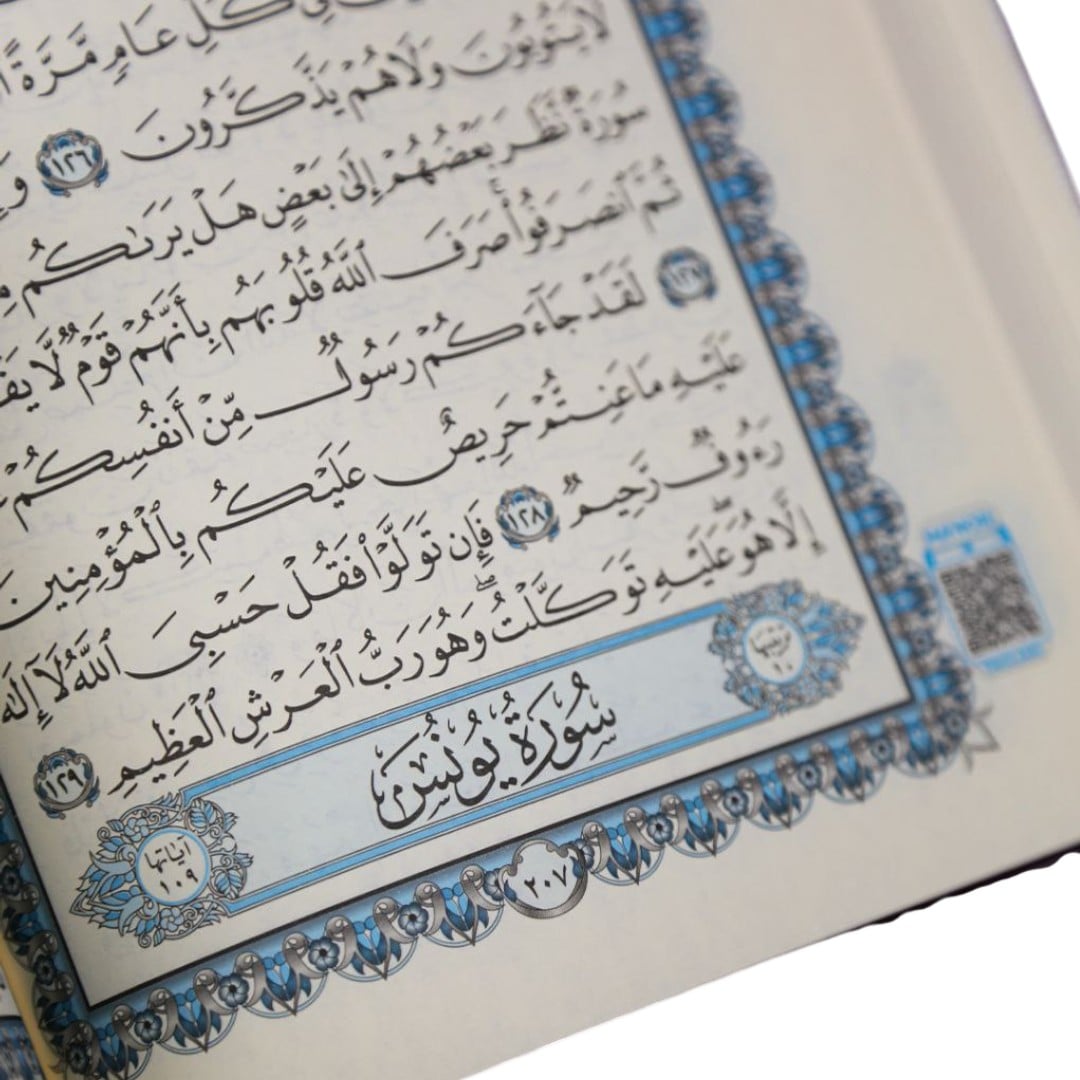 فِي كُلِّ عَامٍ مَّرَّةً
لَا يَتُوبُونَ وَلَا هُمْ يَذَّكَّرُونَ ١٢٦
سُورَةٌ نَّظَرَ بَعْضُهُمْ إِلَىٰ بَعْضٍ هَلْ يَرَىٰكُم
ثُمَّ ٱنصَرَفُوا۟ ۚ صَرَفَ ٱللَّهُ قُلُوبَهُم بِأَنَّهُمْ قَوْمٌ لَّا
١٢٧ لَقَدْ جَآءَكُمْ رَسُولٌ مِّنْ أَنفُسِكُمْ
عَلَيْهِ مَا عَنِتُّمْ حَرِيصٌ عَلَيْكُم بِٱلْمُؤْمِنِينَ
رَءُوفٌ رَّحِيمٌ ١٢٨ فَإِن تَوَلَّوْا۟ فَقُلْ حَسْبِىَ ٱللَّهُ لَآ إِلَٰهَ
إِلَّا هُوَ ۖ عَلَيْهِ تَوَكَّلْتُ ۖ وَهُوَ رَبُّ ٱلْعَرْشِ ٱلْعَظِيمِ ١٢٩
ترتيبها ١٠
سُورَةُ يُونُسَ
آياتها ١٠٩
٢٠٧